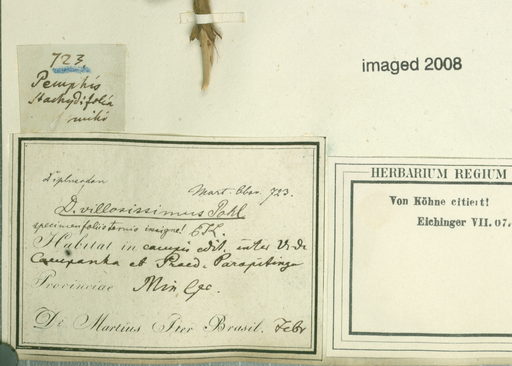 723.
Pemphis
stachydifolia
mihi
imaged 2008
Diplusodon
Mart. Obs. 723.
D. villosissimus Pohl
specimen foliis ternis insigne!
Habitat in campis edit. inter V. de
Campanha et Praed. Parapitinga
Provinciae Min. Ger.
Dr. Martius Iter Brasil. Febr
HERBARIUM REGIUM
Von Köhne citiert!
Eichinger VII. 07.